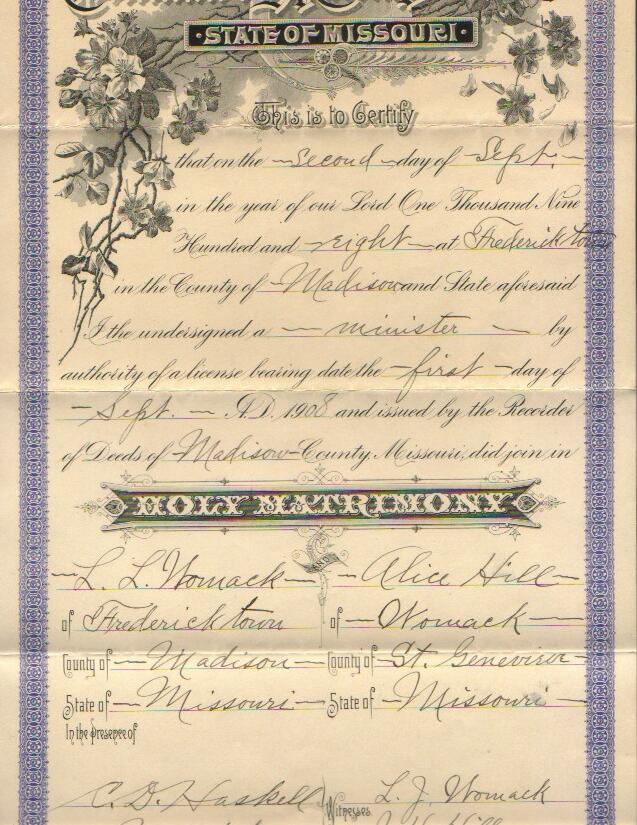 STATE OF MISSOURI
This is to Certify
that on the Second day of Sept.
in the year of our Lord One Thousand Nine
Hundred and eight at Fredericktown
in the County of Madison and State aforesaid
I the undersigned a minister by
authority of a license bearing date the first day of
Sept. A.D. 1908 and issued by the Recorder
of Deeds of Madison County, Missouri, did join in
HOLY MATRIMONY
L. L. Womack Alice Hill
of Fredericktown of Womack
County of Madison County of St. Genevieve
State of Missouri State of Missouri
In the Presence of
C. D. Haskell Witnesses L. J. Womack
Hill